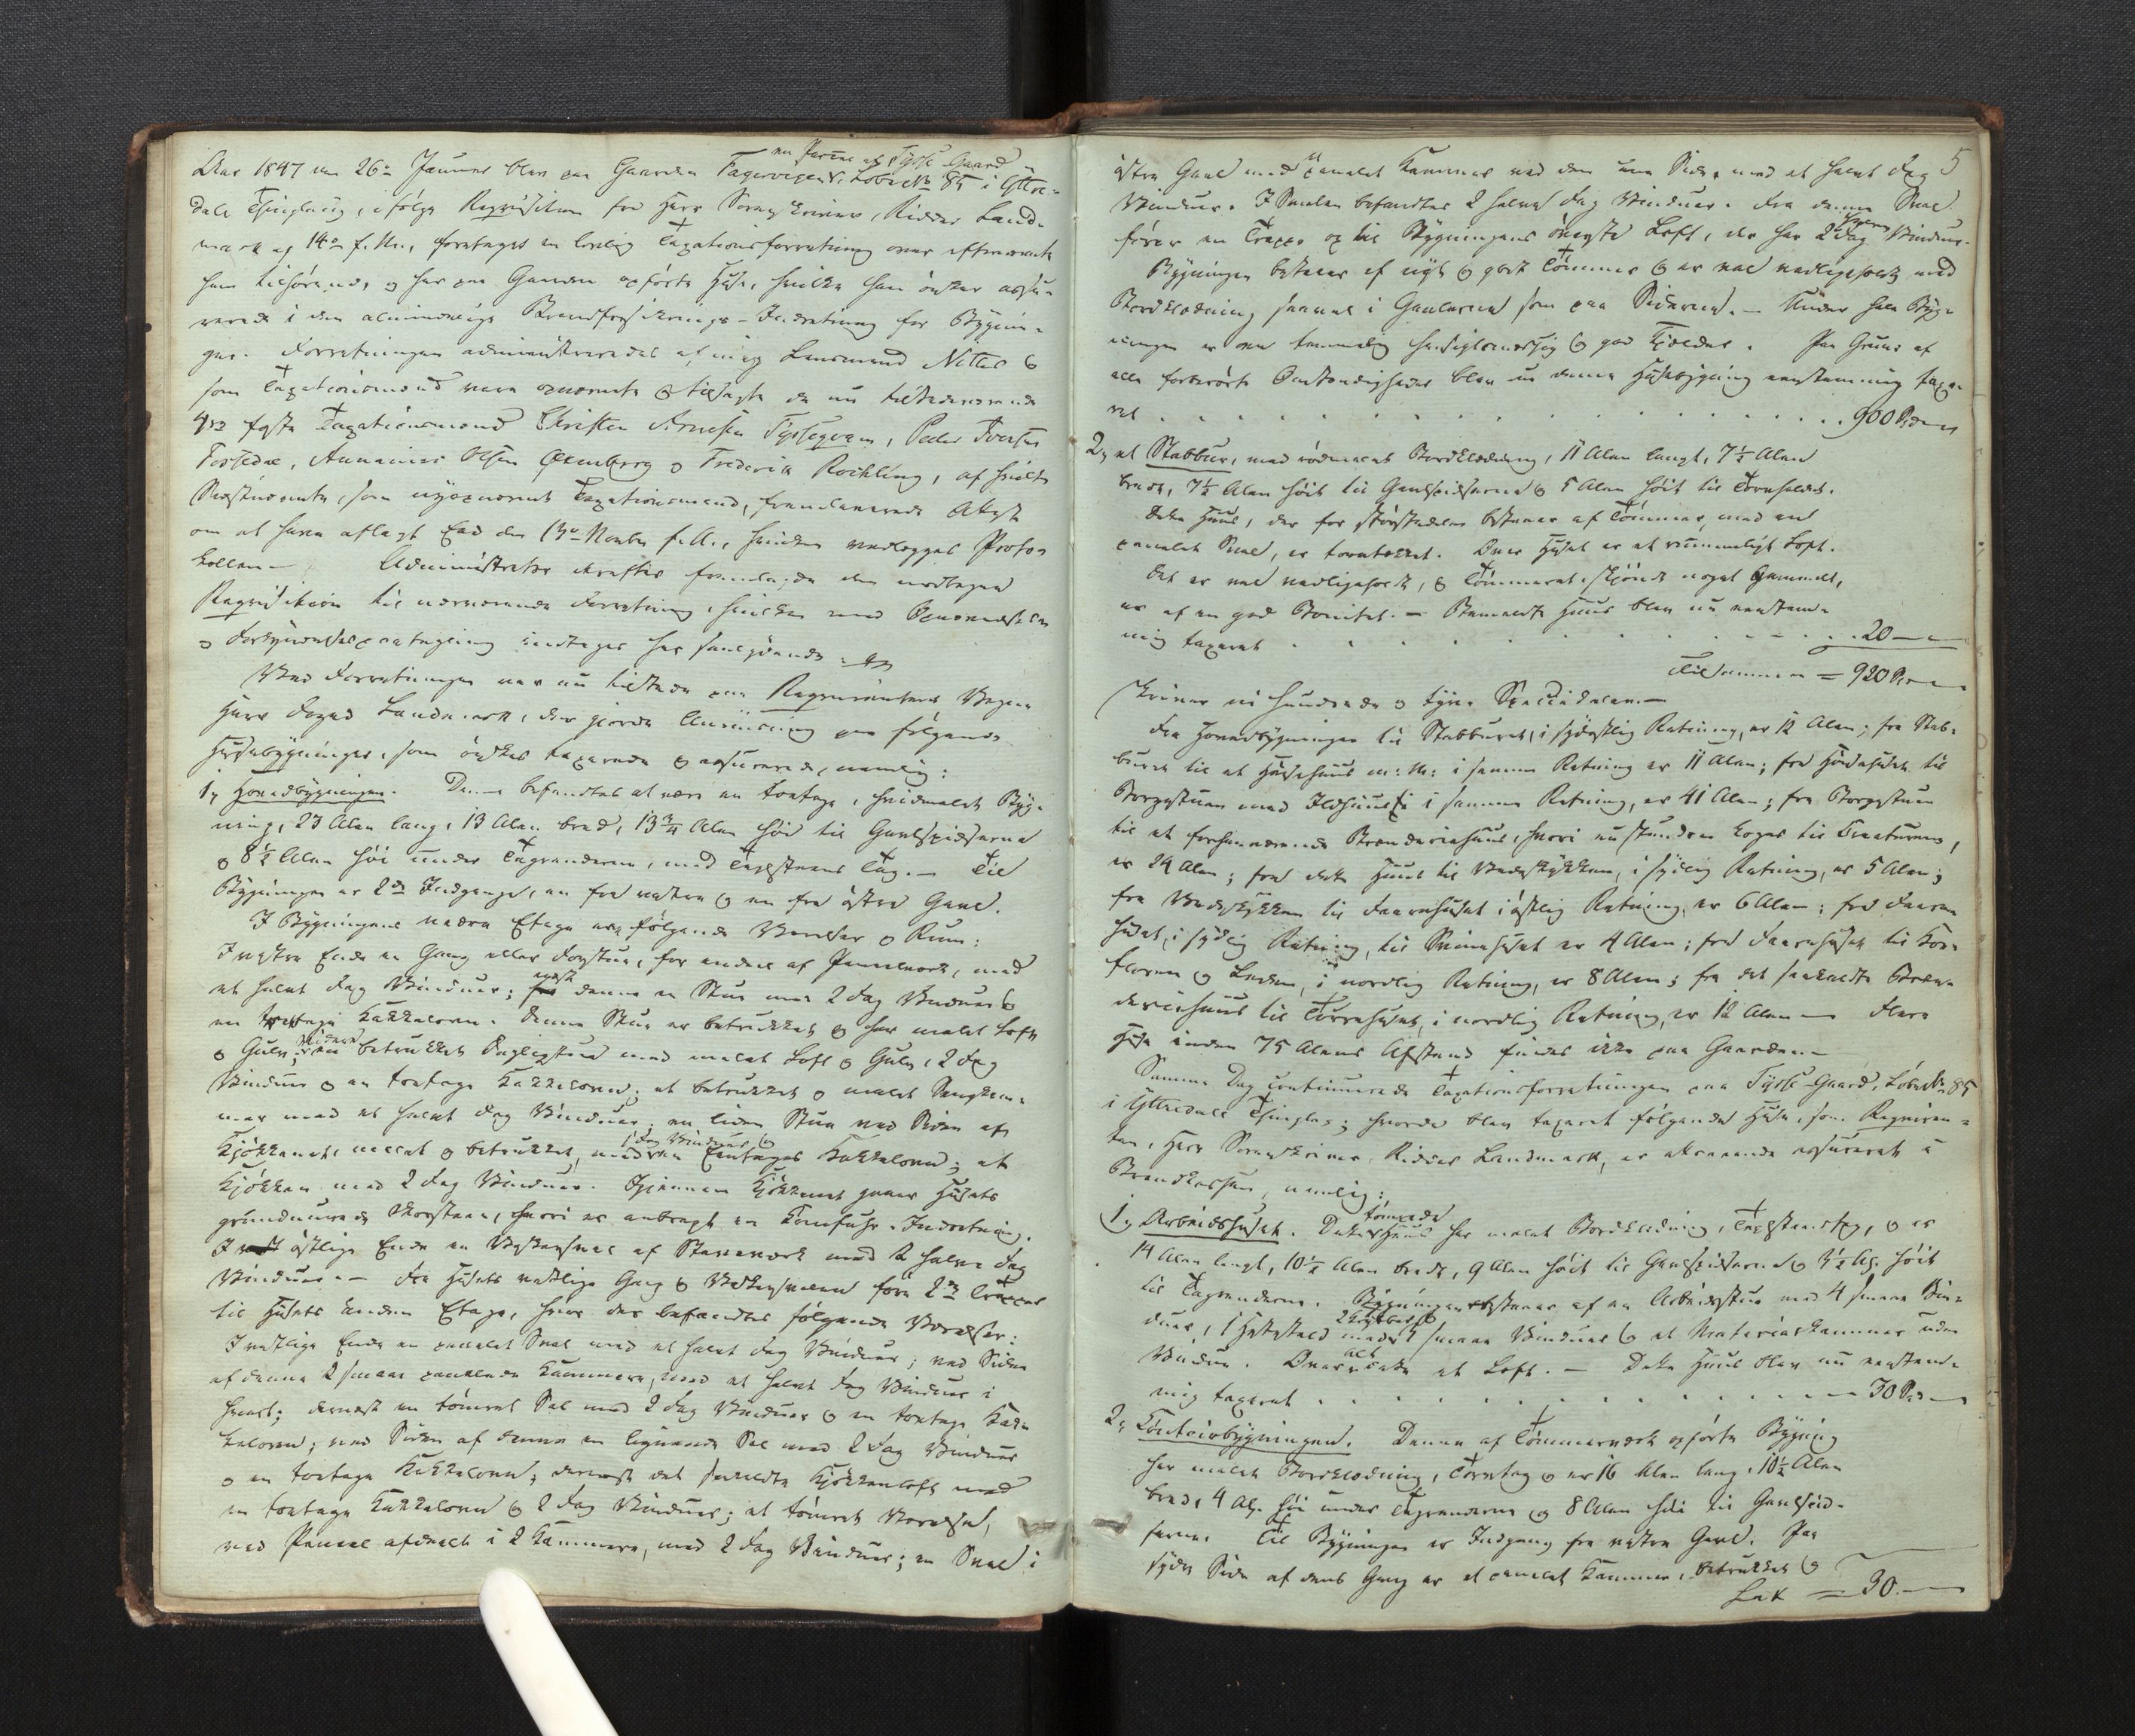 en Parcel af Tysse Gaard
Aar 1847 den 26de Januar blev paa Gaarden Fagervigen, Løbe No 85 i Yttre-
dals Thinglaug, ifølge Reqvisition fra Herr Sorenskriver, Ridder Land-
mark af 14de f. M., foretaget en lovlig Taxationsforretning over eftermeldte
ham tilhørende, og her paa Gaarden opførte Huse, hvilke han ønsker assu-
rerede i den almindelige Brandforsikrings-Indretning for Bygnin-
ger. Forretningen administreredes af mig Lensmand Nitter &
som Taxationsmænd vare opnævnte & tilsagte de nu tilstedeværende
4re faste Taxationsmænd Christen Arnesen Tyssekvam, Peder Iversen
Fossedal, Annanias Olsen Oxenberg og Frederik Rochling, af hvilke
Sidstnævnte, som nyopnævnt Taxationsmand, fremleverede Attest
om at have aflagt Eed den 13de Novbr f. A., hvilken vedlægges Proto-
kollen. Administrator derefter fremlagde den modtagne
Reqvisition til nærværende Forretning, hvilken med Opnævnelse
og Forkyndelsespaategning indtages her saalydende:
Ved Forretningen var nu tilstede paa Reqvirentens Vegne
Herr Foged Landmark, der gjorde Anviisning paa følgende
Husebygninger, som ønskes taxerede & assurerede, nemlig:
1, Hovedbygningen. Denne befandtes at være en toetages, hvidmalet Byg-
ning, 23 Alen lang, 13 Alen bred, 13 3/4 Alen høi til Gavlspidserne
og 8 1/2 Alen høi under Tagrenderne, med Taxsteens Tag. — Til
Bygningen er 2de Indgange, en fra vestre & en fra østre Gavl.
I Bygningens nedre Etage ere følgende Værelser og Rum:
I vestre Ende en Gang eller Forstue, for endeel af Panelværk, med
et halvt Fag Vinduer; næst denne en Stue med 2 Fag Vinduer &
en toetages Kakkelovn. Denne Stue er betrukket & har malet Loft
og Gulv; videre en betrukket Dagligstue med malet Loft & Gulv, 2 Fag
Vinduer & en toetages Kakkelovn; et betrukket og malet Sengkam-
mer med et halvt Fag Vinduer; en liden Stue ved Siden af
Kjøkkenet, malet og betrukket, med 1 Fag Vinduer & en Eenetages Kakkelovn; et
Kjøkken med 2 Fag Vinduer. Igjennem Kjøkkenet gaaer Husets
grundmurede Skorsteen, hvori er anbragt en Komfuhr-Indretning.
I østlige Ende en Vaskesval af Stavværk med 2 halve Fag
Vinduer. — Fra Husets vestlige Gang & Vaskesvalen føre 2de Trapper
til Husets anden Etage, hvor der befandtes følgende Værelser:
I vestlige Ende en panelet Sval med et halvt Fag Vinduer; ved Siden
af denne 2 smaae panelede Kammere, med et halvt Fag Vinduer i
hvert; dernæst en tømret Sal med 2 Fag Vinduer & en toetages Kak-
kelovn; ved Siden af denne en lignende Sal med 2 Fag Vinduer
og en toetages Kakkelovn; dernæst det saakaldte Kjøkkenloft med
en toetages Kakkelovn & 2 Fag Vinduer; et tømret Værelse,
ved Panel afdeelt i 2 Kammere, med 2 Fag Vinduer; en Sval i
5
østre Gavl med et panelet Kammer ved den ene Side, med et halvt Fag
Vinduer. I Svalen befandtes 2 halve Fag Vinduer. Fra denne Sval
fører en Trappe op til Bygningens øverste Loft, der har 2 halve Fag Vinduer.
Bygningen bestaaer af nyt & godt Tømmer & er vel vedligeholdt med
Bordklædning saavel i Gavlerne som paa Siderne. — Under hele Byg-
ningen er en temmelig hensigtsmæssig & god Kjælder. Paa Grund af
alle forberørte Omstændigheder blev nu denne Husebygning eenstemmig taxe-
ret . . . . . . . . . . 900 Spd.
2, et Stabbur, med rødmalet Bordklædning, 11 Alen langt, 7 1/2 Alen
bredt, 7 1/2 Alen høit til Gavlspidserne & 5 Alen høit til Torvholdet.
Dette Huus, der for største Delen bestaaer af Tømmer, med en
panelet Sval, er torvtækket. Over Huset er et rummeligt Loft.
Det er vel vedligeholdt, & Tømmeret, skjøndt noget gammelt,
er af en god Bonitet. — Bemeldte Huus blev nu eenstem-
mig taxeret . . . . . . . . . . 20 —
Tilsammen = 920 Spd.
skriver ni hundrede og tyve Speciedaler. —
Fra Hovedbygningen til Stabburet, i sydøstlig Retning, er 12 Alen; fra Stab-
buret til et Hønsehuus m: M: i samme Retning er 11 Alen; fra Hønsehuset til
Borgestuen med Ildhuus i samme Retning, er 41 Alen; fra Borgestuen
til et forhenværende Brænderiehuus, hvori nu stundom koges til Creaturene,
er 24 Alen; fra dette Huus til Vedskykken, i sydlig Retning, er 5 Alen;
fra Vedskykken til Faarehuset i østlig Retning, er 6 Alen; fra Faare-
huset, i sydlig Retning, til Sviinehuset er 4 Alen; fra Faarehuset til Koe-
floren & Laden, i nordlig Retning, er 8 Alen; fra det saakaldte Bræn-
deriehuus til Tørrehuset, i nordlig Retning, er 12 Alen — Flere
Huse inden 75 Alens Afstand findes ikke paa Gaarden. —
Samme Dag continuerede Taxationsforretningen paa Tysse-Gaard, Løbe No 85
i Yttredals Thinglag; hvorda blev taxeret følgende Huse, som Reqviren-
ten, Herr Sorenskriver, Ridder Landmark, er attraaende assureret i
Brandkassen, nemlig:
1, Arbeidshuset. Dette tømrede Huus har malet Bordklædning, Taxsteenstag, & er
14 Alen langt, 10 1/2 Alen bredt, 9 Alen høit til Gavlspidserne & 4 1/2 Al. høit
til Tagrenderne. Bygningen bestaaer af en Arbeidsstue med 4 smaae Vin-
duer, 1 med smaae Vinduer & et Materialkammer uden
Vinduer. Over alt dette et Loft. — Dette Huus blev nu eenstem-
mig taxeret . . . . . . . . . . 30 Spd.
2, Contoirbygningen. Denne af Tømmerværk opførte Bygning
har malet Bordklædning, Torvtag & er 16 Alen lang, 10 1/2 Alen
bred, 4 Al. høi under Tagrenderne & 8 Alen høi til Gavlspid-
serne. Til Bygningen er Indgang fra vestre Gavl. Paa
søndre Side af dens Gang er et panelet Kammer, betrukket &
Lat = 30. —